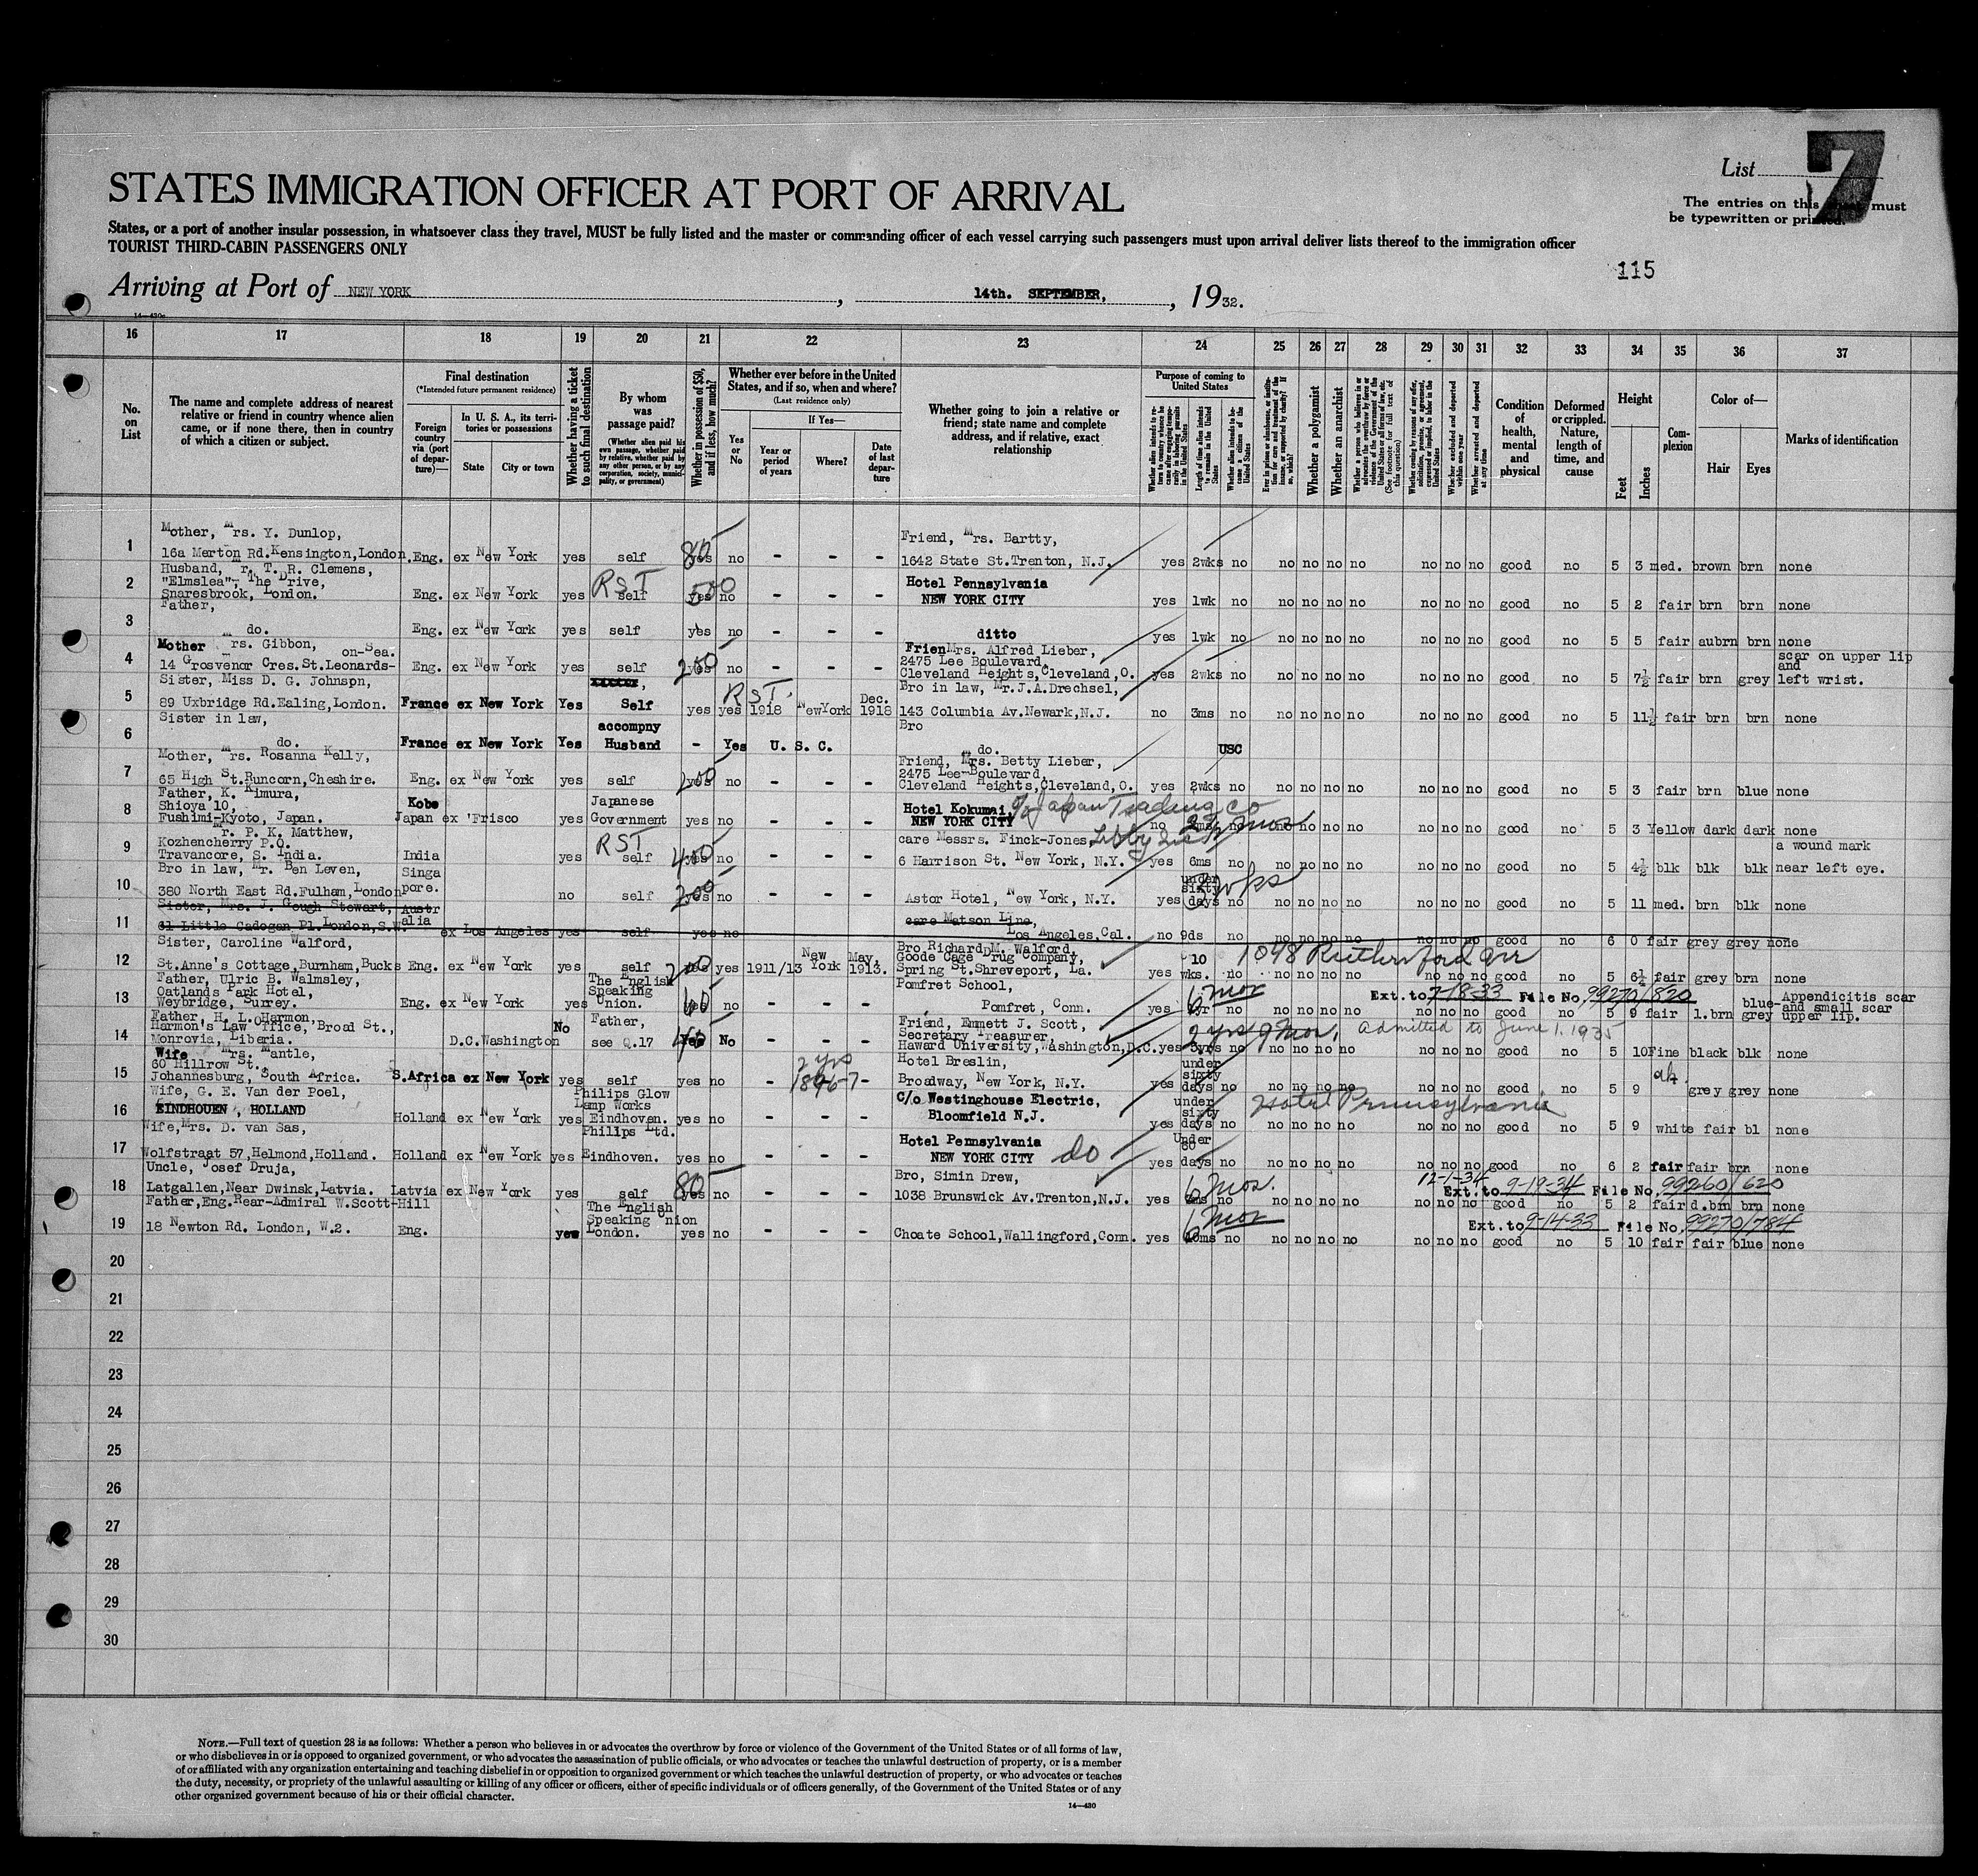 List 7
STATES IMMIGRATION OFFICER AT PORT OF ARRIVAL
The entries on this must
be typewritten or printed.
States, or a port of another insular possession, in whatsoever class they travel, MUST be fully listed and the master or commanding officer of each vessel carrying such passengers must upon arrival deliver lists thereof to the immigration officer
TOURIST THIRD-CABIN PASSENGERS ONLY
115
Arriving at Port of NEW YORK, 14th. SEPTEMBER, 1932.
14—430c
16 17 18 19 20 21 22 23 24 25 26 27 28 29 30 31 32 33 34 35 36 37
No. on List
The name and complete address of nearest relative or friend in country whence alien came, or if none there, then in country of which a citizen or subject.
Final destination
(*Intended future permanent residence)
Foreign country via (port of departure)—
In U. S. A., its territories or possessions
State
City or town
Whether having a ticket to such final destination
By whom was passage paid?
(Whether alien paid his own passage, whether paid by relative, whether paid by any other person, or by any corporation, society, municipality, or government)
Whether in possession of $50, and if less, how much?
Whether ever before in the United States, and if so, when and where?
(Last residence only)
Yes or No
If Yes—
Year or period of years
Where?
Date of last departure
Whether going to join a relative or friend; state name and complete address, and if relative, exact relationship
Purpose of coming to United States
Length of time alien intends to remain in the United States
Whether alien intends to become a citizen of the United States
Whether a polygamist
Whether an anarchist
(See footnote for full text of this question)
Whether excluded and deported within one year
Whether arrested and deported at any time
Condition of health, mental and physical
Deformed or crippled. Nature, length of time, and cause
Height
Feet
Inches
Complexion
Color of—
Hair
Eyes
Marks of identification
1 Mother, Mrs. Y. Dunlop,
16a Merton Rd.Kensington,London. Eng. ex New York yes self yes 80 no - - - Friend, Mrs. Bartty,
1642 State St.Trenton, N.J. yes 2wks no no no no no no no no good no 5 3 med. brown brn none
2 Husband, Mr. T. R. Clemens,
"Elmslea", The Drive,
Snaresbrook, London. Eng. ex New York yes RST self yes 500 no - - - Hotel Pennsylvania
NEW YORK CITY yes 1wk no no no no no no no no good no 5 2 fair brn brn none
3 Father,
do. Eng. ex New York yes self yes no - - - ditto yes 1wk no no no no no no no no good no 5 5 fair aubrn brn none
4 Mother Mrs. Gibbon,
14 Grosvenor Cres.St.Leonards-on-Sea. Eng. ex New York yes self yes 250 no - - - Friend Mrs. Alfred Lieber,
2475 Lee Boulevard,
Cleveland Heights,Cleveland,O. yes 2wks no no no no no no no no good no 5 7½ fair brn grey scar on upper lip and left wrist.
5 Sister, Miss D. G. Johnspn,
89 Uxbridge Rd.Ealing,London. France ex New York Yes Self yes RST. yes 1918 NewYork Dec. 1918 Bro in law, Mr.J.A.Drechsel,
143 Columbia Av.Newark,N.J. no 3ms no no no no no no no no good no 5 11½ fair brn brn none
6 Sister in law,
do. France ex New York Yes accompny Husband - Yes U. S. C. Bro
do. USC
7 Mother, Mrs. Rosanna Kelly,
65 High St.Runcorn,Cheshire. Eng. ex New York yes self yes 200 no - - - Friend, Mrs. Betty Lieber,
2475 Lee-Boulevard,
Cleveland Heights,Cleveland,O. yes 2wks no no no no no no no no good no 5 3 fair brn blue none
8 Father, K. Kimura,
Shioya 10,
Fushimi-Kyoto, Japan. Kobe Japan ex 'Frisco yes Japanese Government yes no - - - Hotel Kokumai, c/o Japan Trading Co
NEW YORK CITY no no no no no no no no no good no 5 3 Yellow dark dark none
9 Mr. P. K. Matthew,
Kozhencherry P.O.
Travancore, S. India. India yes RST self yes 400 no - - - care Messrs. Finck-Jones
6 Harrison St. New York, N.Y. yes 6ms no no no no no no no no good no 5 4½ blk blk blk a wound mark near left eye.
10 Bro in law, Mr. Ben Leven,
380 North East Rd.Fulham,London Singapore. no self yes 200 no - - - Astor Hotel, New York, N.Y. yes under sixty days 3 wks no no no no no no no no good no 5 11 med. brn blk none
11 Sister, Mrs. J. Gough Stewart,
61 Little Cadogan Pl.London,S.W. Australia ex Los Angeles yes self yes no care Matson Line,
Los Angeles,Cal. no 9ds no no no no no no no no good no 6 0 fair grey grey none
12 Sister, Caroline Walford,
St.Anne's Cottage,Burnham,Bucks Eng. ex New York yes self yes 200 yes 1911/13 New York May. 1913. Bro Richard M. Walford,
Goode Cage Drug Company,
Spring St.Shreveport, La. yes 10 wks. no 1048 Rutherford no no no no no no no good no 5 6½ fair grey brn none
13 Father, Ulric B. Walmsley,
Oatlands Park Hotel,
Weybridge, Surrey. Eng. ex New York yes The English Speaking Union. yes 60 no - - - Pomfret School,
Pomfret, Conn. yes 1yr 6 mos no Ext. to 7-18-33 File No. 99270/820 no no no no no no no good no 5 9 fair l.brn blue-grey Appendicitis scar and small scar upper lip.
14 Father, H. L. Harmon,
Harmon's Law Office, Broad St.,
Monrovia, Liberia. D.C.Washington No Father, see Q.17 Yes No - - - Friend, Emmett J. Scott,
Secretary Treasurer,
Haward University,Washington,D.C. yes 3yrs no 2 yrs 9 Mos. Admitted to June 1. 1935 no no no no no no no good no 5 10 Fine black blk none
15 Wife Mrs. Mantle,
60 Hillrow St.,
Johannesburg, South Africa. S.Africa ex New York yes self yes no - 2 yrs 1896-7 - Hotel Breslin,
Broadway, New York, N.Y. yes under sixty days no no no no no no no no good no 5 9 grey grey none
16 Wife, G. E. Van der Poel,
EINDHOUEN , HOLLAND Holland ex New York yes Philips Glow Lamp Works Eindhoven. yes no - - - C/o Westinghouse Electric,
Bloomfield N.J. yes under sixty days no Hotel Pennsylvania no no no no no no no good no 5 9 white fair bl none
17 Wife,Mrs. D. van Sas,
Wolfstraat 57,Helmond,Holland. Holland ex New York yes Philips Ltd. Eindhoven. yes no - - - Hotel Pennsylvania
NEW YORK CITY do yes Under 60 days no no no no no no no good no 6 2 fair fair brn none
18 Uncle, Josef Druja,
Latgallen,Near Dwinsk,Latvia. Latvia ex New York yes self yes 80 no - - - Bro, Simin Drew,
1038 Brunswick Av.Trenton,N.J. yes 6 mos. no 12-1-34 Ext. to 9-19-34 File No. 99260/620 no no no no no no no good no 5 2 fair d.brn brn none
19 Father,Eng.Rear-Admiral W.Scott-Hill
18 Newton Rd. London, W.2. Eng. yes The English Speaking Union London. yes no - - - Choate School,Wallingford,Conn. yes 6 mos no Ext. to 9-14-33 File No. 99270/784 no no no no no no no good no 5 10 fair fair blue none
20
21
22
23
24
25
26
27
28
29
30
NOTE.—Full text of question 28 is as follows: Whether a person who believes in or advocates the overthrow by force or violence of the Government of the United States or of all forms of law,
or who disbelieves in or is opposed to organized government, or who advocates the assassination of public officials, or who advocates or teaches the unlawful destruction of property, or is a member
of or affiliated with any organization entertaining and teaching disbelief in or opposition to organized government or which teaches the unlawful destruction of property, or who advocates or teaches
the duty, necessity, or propriety of the unlawful assaulting or killing of any officer or officers, either of specific individuals or of officers generally, of the Government of the United States or of any
other organized government because of his or their official character.
14—430